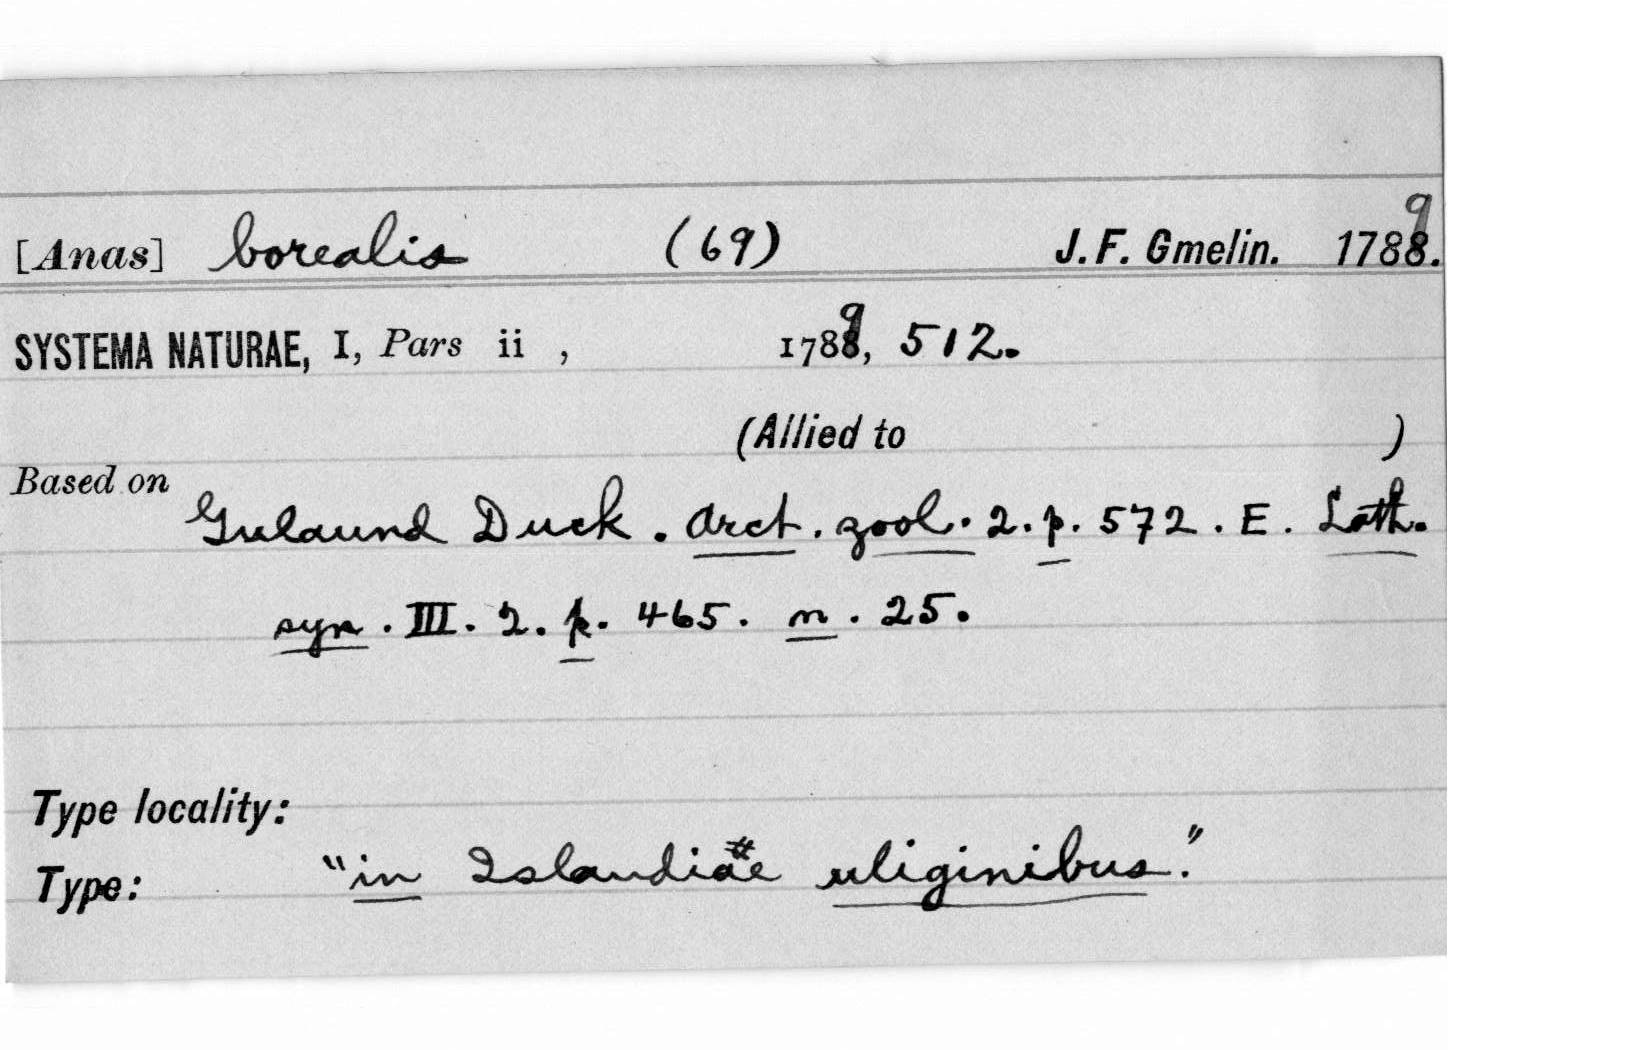 [Anas] borealis (69) J. F. Gmelin. 1789.
SYSTEMA NATURAE, I, Pars ii , 1789, 512.
(Allied to )
Based on
Gulaund Duck. Arct. zool. 2. p. 572. E. Lath.
syn. III. 2. p. 465. n. 25.
Type locality:
Type: "in Islandiae uliginibus."